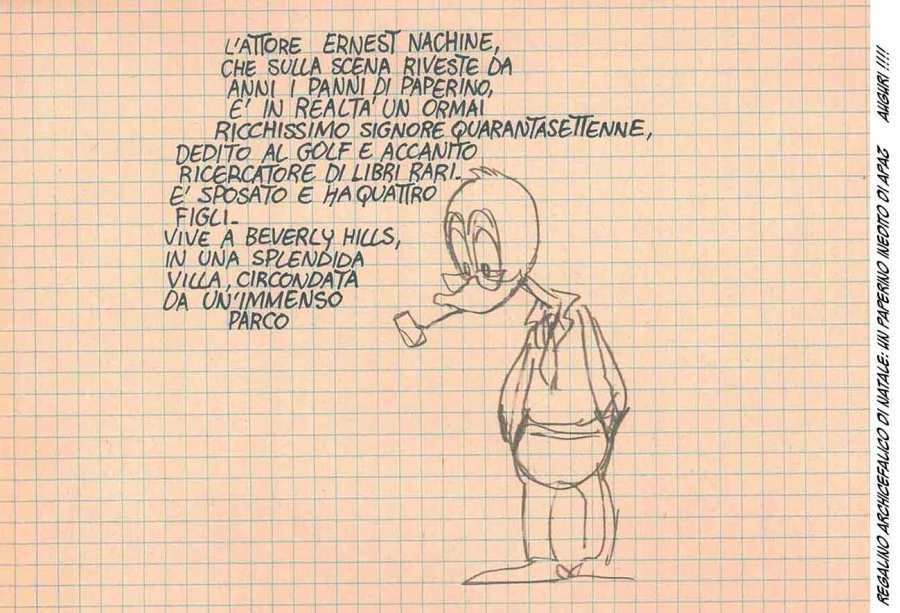 L'ATTORE ERNEST NACHINE,
CHE SULLA SCENA RIVESTE DA
ANNI I PANNI DI PAPERINO,
E' IN REALTA' UN ORMAI
RICCHISSIMO SIGNORE QUARANTASETTENNE,
DEDITO AL GOLF E ACCANITO
RICERCATORE DI LIBRI RARI_
E' SPOSATO E HA QUATTRO
FIGLI_
VIVE A BEVERLY HILLS,
IN UNA SPLENDIDA
VILLA, CIRCONDATA
DA UN'IMMENSO
PARCO
REGALINO ARCHICEFALICO DI NATALE: UN PAPERINO INEDITO DI APAZ AUGURI !!!!